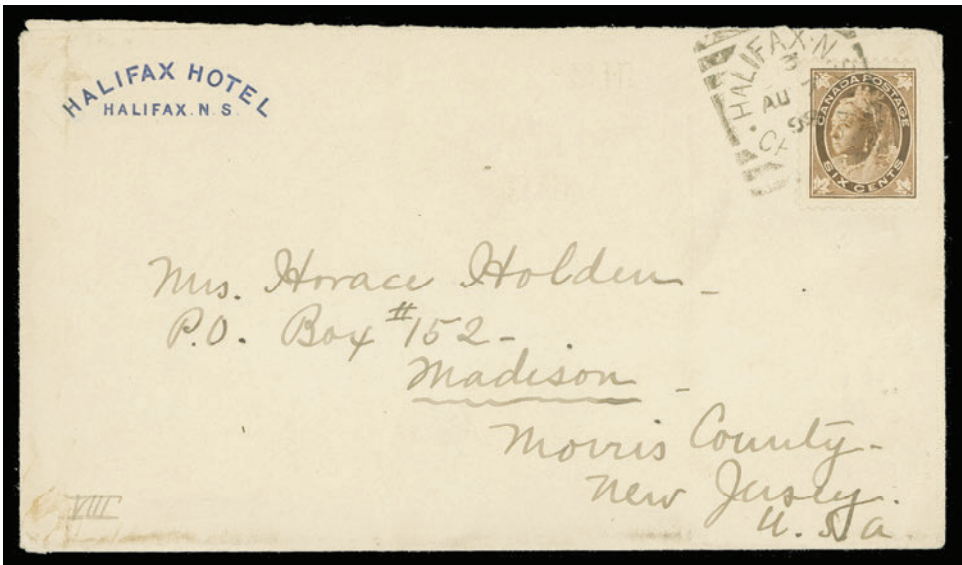 HALIFAX HOTEL
HALIFAX. N. S.
HALIFAX. N.S.
AU
99
CA
CANADA POSTAGE
SIX CENTS
Mrs. Horace Holden -
P.O. Box #152 -
Madison -
Morris County -
New Jersey.
U. S. A.
VIII